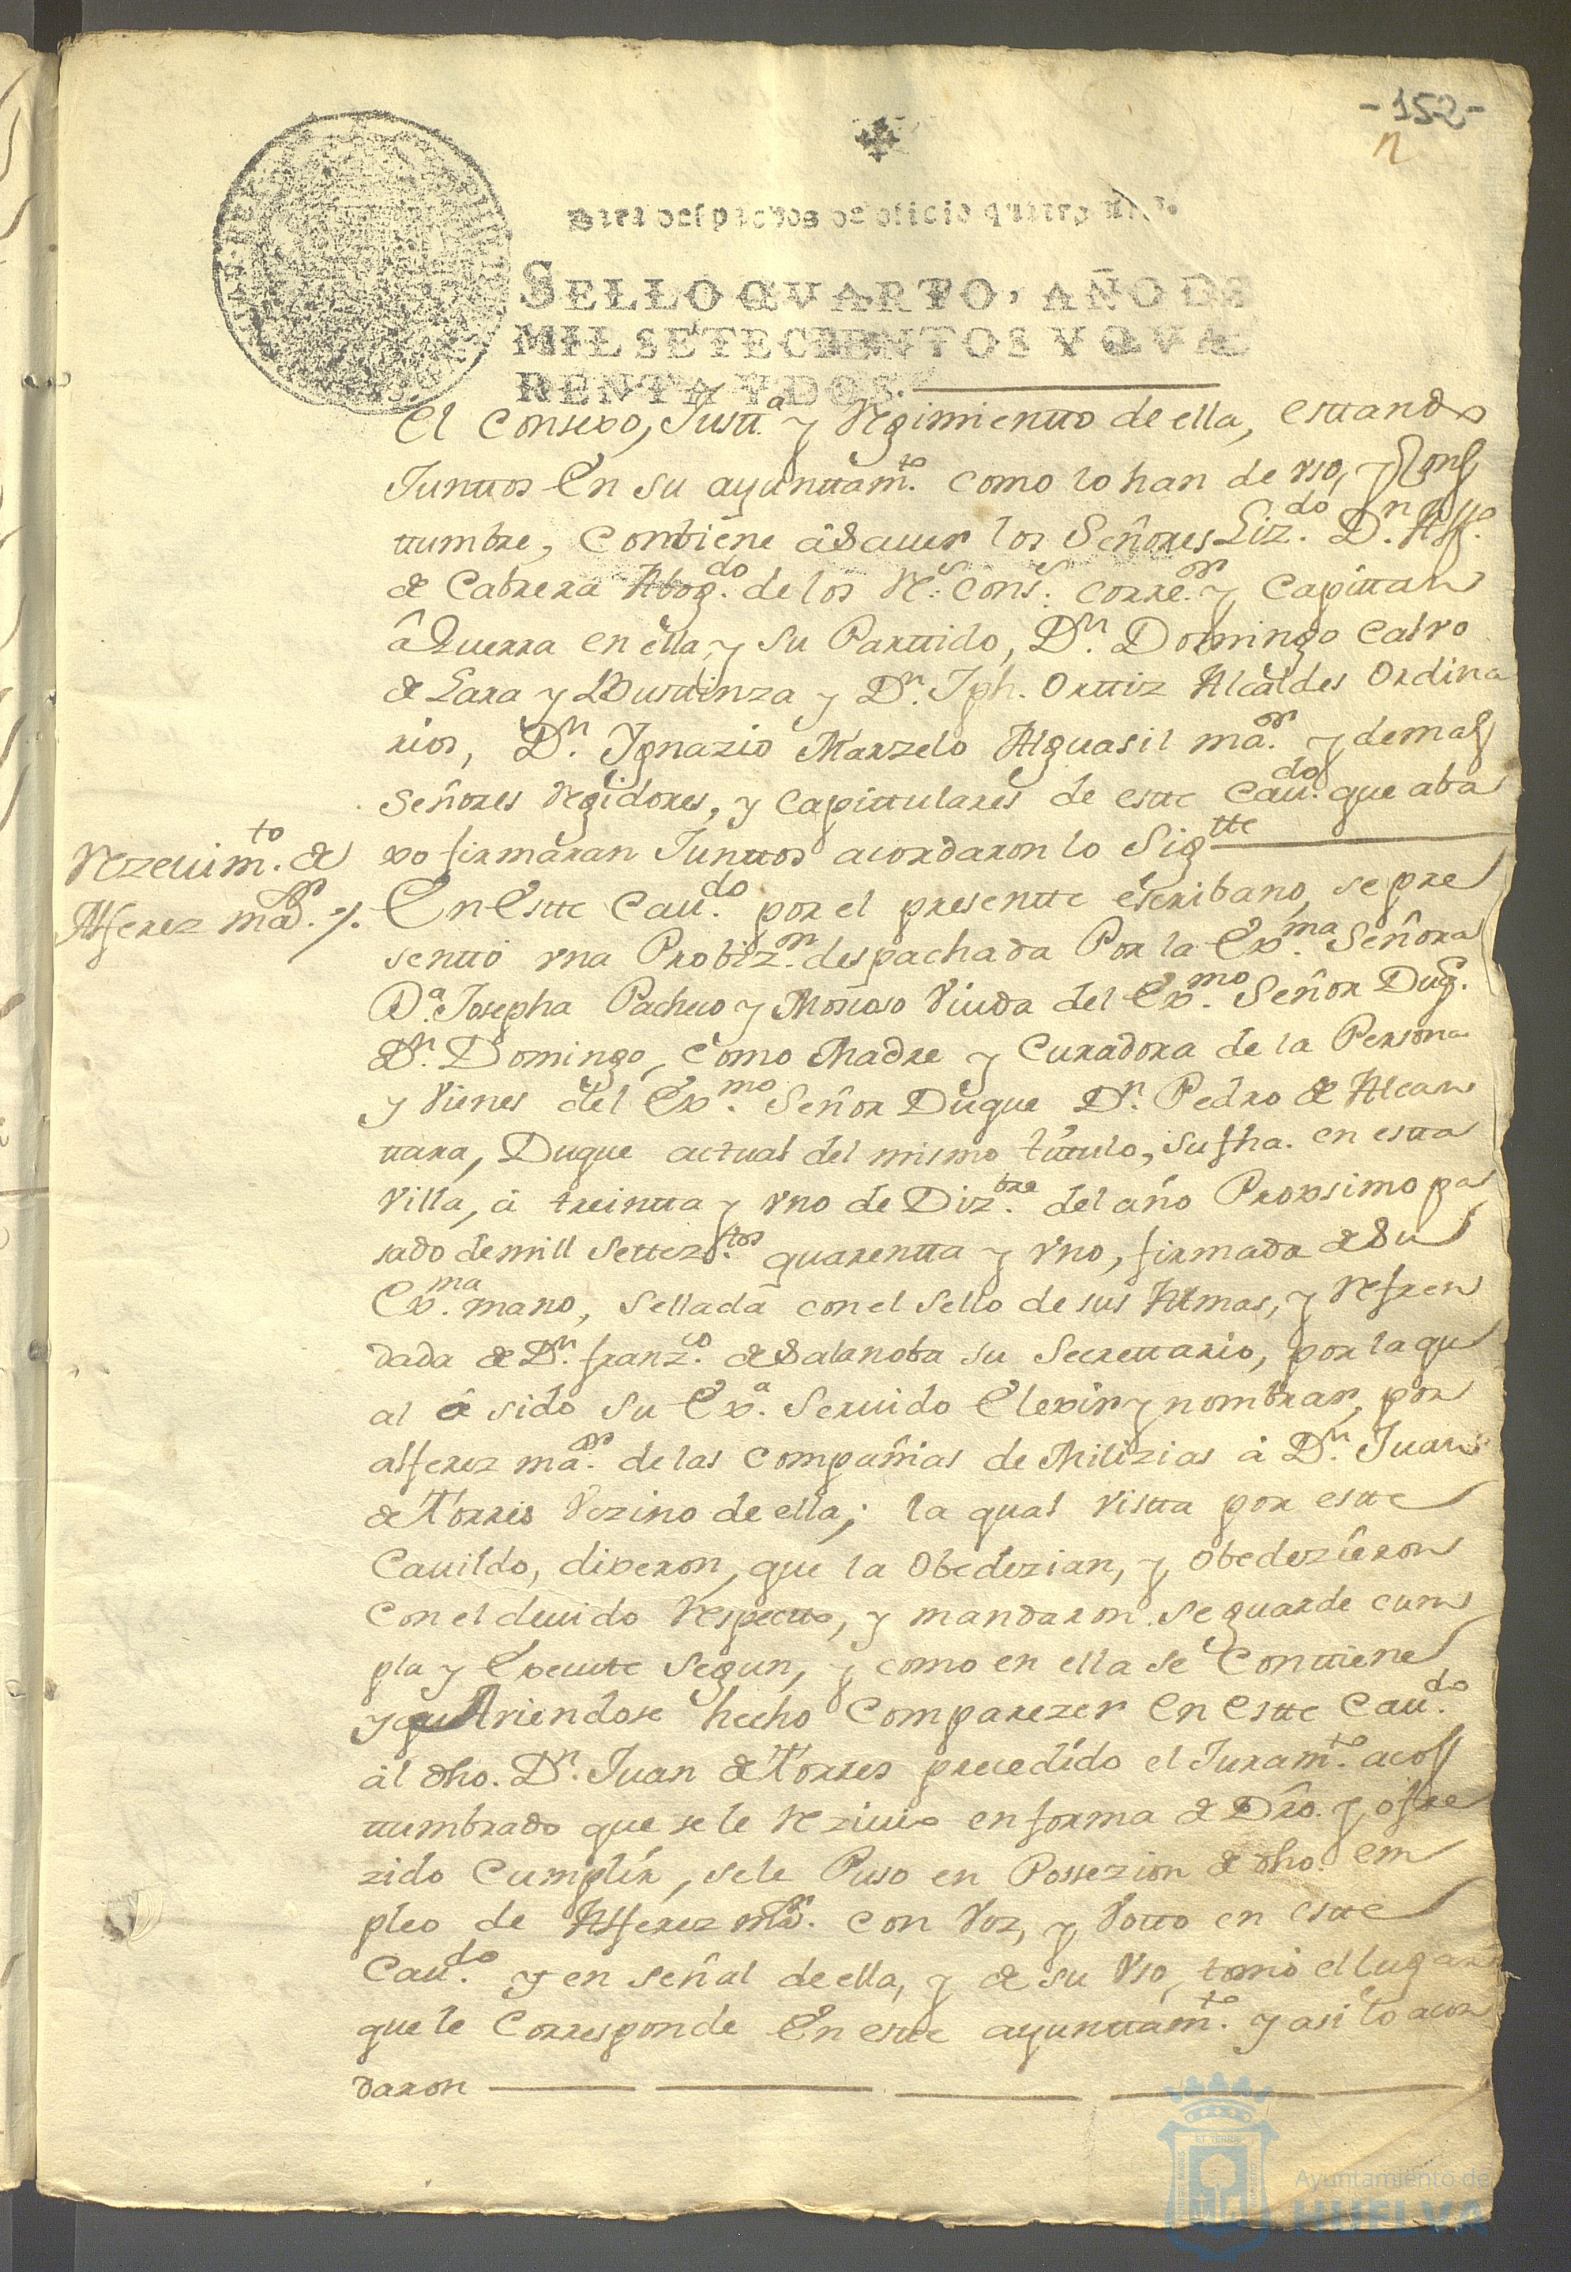 -152-
n
Para despachos de oficio quatro mrs.
SELLO QVARTO, AÑO DE
MIL SETECIENTOS Y QVA
RENTA Y DOS.
El Consexo, Justt.ª y Regimientto de ella, esttando
Junttos En su ayunttam.to como lo han de vso, y Cons
ttumbre, Combiene â Sauer los Señores Liz.do D.n
de Cabrera Abog.do de los R.s Cons.s Corre.or y Capittan
â Guerra en ella y su Parttido, D.n Domingo Calvo
de Lara y Busttinza y D.n Jph. Orttiz Alcaldes Ordina
rios, D.n Ygnazio Marzelo Alguasil ma.or y demas
Señores Regidores, y Capittulares de estte Cau.do que aba
xo firmaran Junttos acordaron lo Sig.tte
Rezeuim.to de
Alferez ma.or
En Estte Cau.do por el presentte escribano, se pre
senttó vna Probiz.on despachada Por la Ex.ma Señora
D.ª Josepha Pacheco y Moscoso Viuda del Ex.mo Señor Duq.e
D.n Domingo, como Madre y Curadora de la Persona
y Vienes del Ex.mo Señor Duque D.n Pedro de Alcan
ttara, Duque actual del mismo títtulo, su fha. en estta
Villa, â treintta y vno de Diz.bre del año Proxsimo pa
sado de mill Settez.tos quarentta y vno, firmada de Su
Ex.ma mano, Sellada con el Sello de sus Armas, y Refren
dada de D.n franz.co de Salanoba su Secrettario, por la qu
al â sido su Ex.ª Seruido Elexir y nombrar, por
alferez ma.or de las Compañias de Milizias â D.n Juan
de Torres Vezino de ella; la qual Vistta por estte
Cauildo, dixeron, que la Obedezian, y Obedezieron
Con el deuido Respectto, y mandaron se guarde cum
pla y Execute Segun, y como en ella se Conttiene
y Auiendose hecho Comparezer En Estte Cau.do
âl dho. D.n Juan de Torres precedido el Juram.to acos
ttumbrado que se le Reziuio en forma de Dro. y ofre
zido Cumplir, se le Puso en Possezion de dho. em
pleo de Alferez ma.or con Voz, y Votto en estte
Cau.do y en señal de ella, y de su Vso, tomó el lugar
que le Corresponde En estte ayunttam.to y asi lo acor
daron
Ayuntamiento de
HUELVA